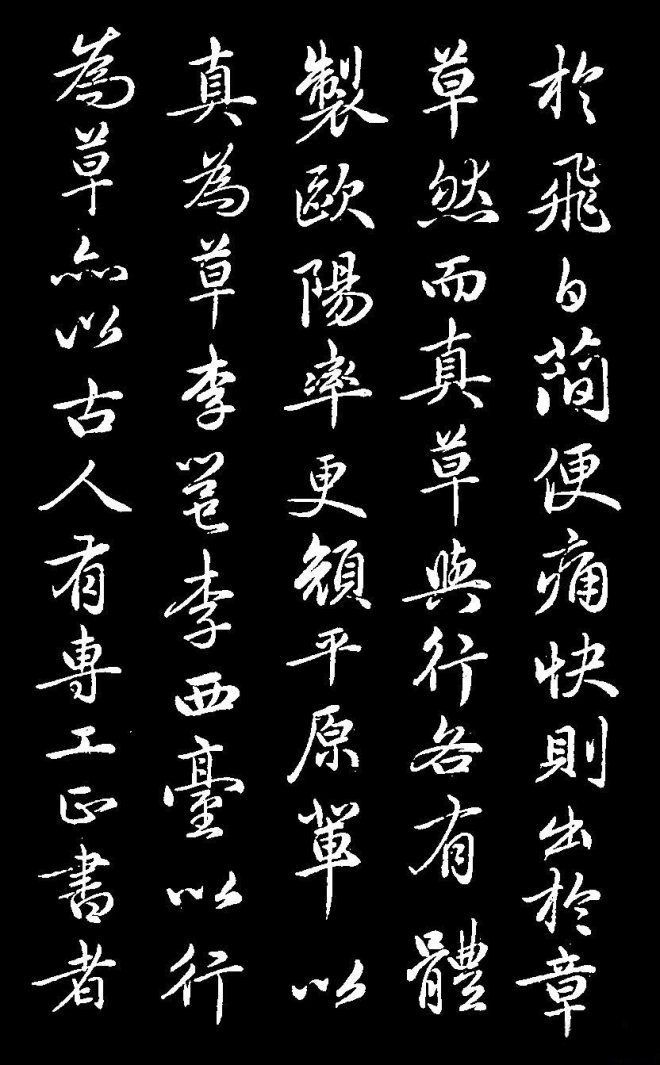 於飛白簡便痛快則出於章
草然而真草與行各有體
製歐陽率更顏平原輩以
真為草李邕李西臺以行
為草亦以古人有專工正書者